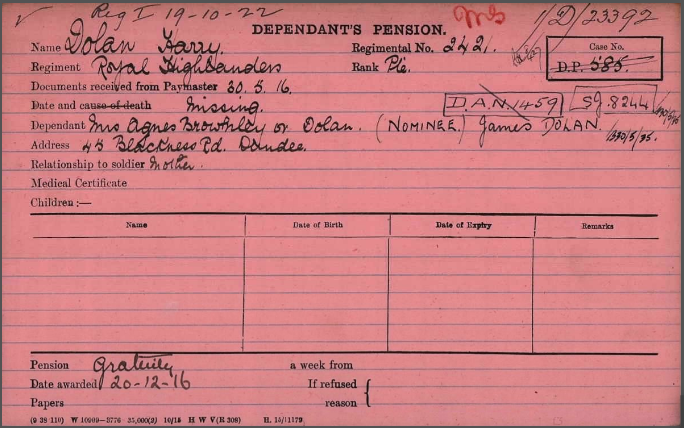 Reg I 19-10-22 1/D/23392
DEPENDANT'S PENSION.
Name Dolan Harry. Regimental No. 2421. Case No.
Regiment Royal Highlanders Rank Pte. D.P. 585.
Documents received from Paymaster 30.5.16.
Date and cause of death Missing. D.A.N. 1459 SJ.8244
Dependant Mrs Agnes Brownley or Dolan. (NOMINEE.) James DOLAN.
Address 45 Blackness Rd. Dundee.
Relationship to soldier Mother.
Medical Certificate
Children:—
Name Date of Birth Date of Expiry Remarks
Pension Gratuity a week from
Date awarded 20-12-16 If refused
Papers reason {
(9 38 110) W 10909—3776 35,000(2) 10/15 H W V(R 308) H. 15/1179